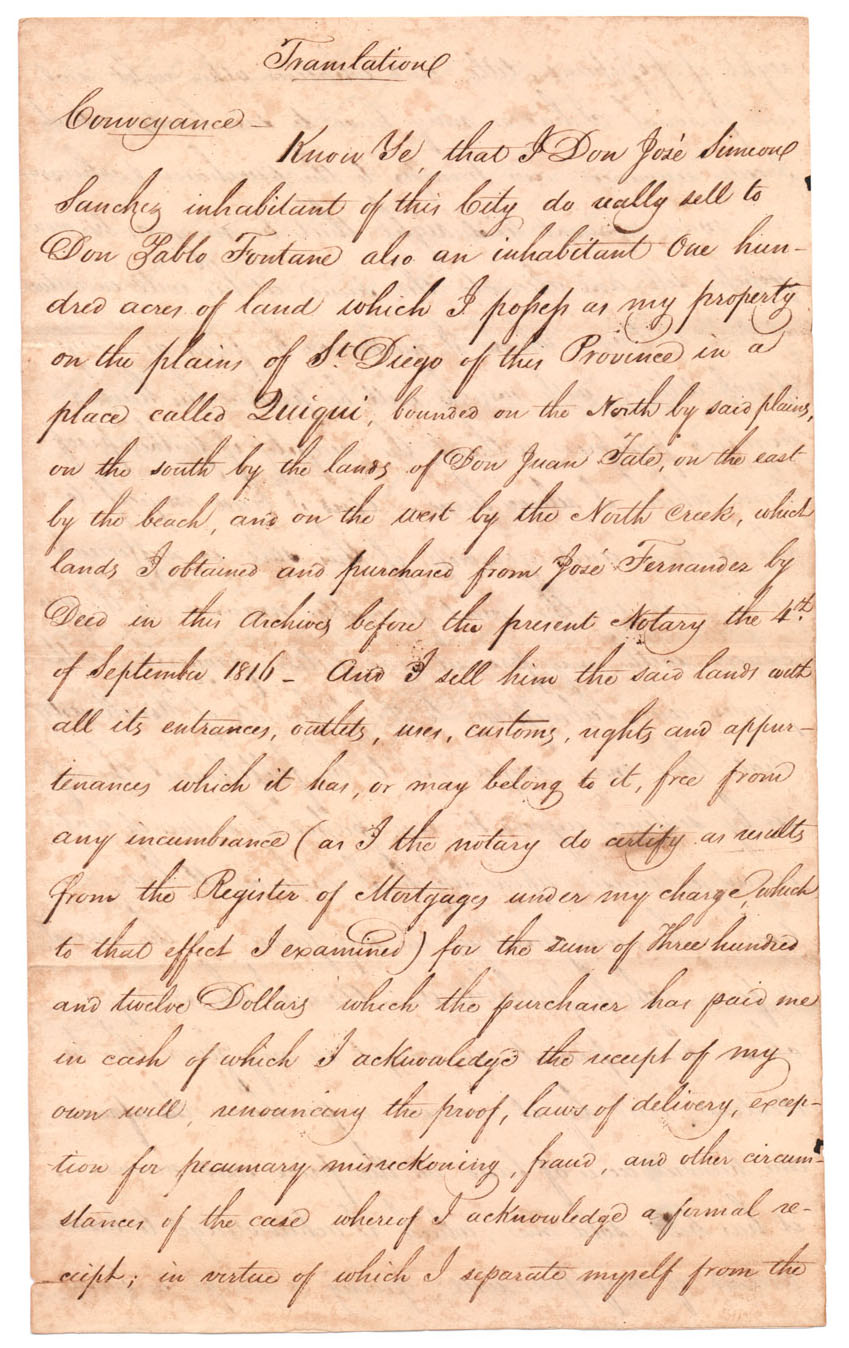 Translation
Conveyance –
Know Ye, that I Don José Simeon
Sanchez inhabitant of this City do really sell to
Don Pablo Fontane also an inhabitant One hun-
dred acres of land which I possess as my property
on the plains of St. Diego of this Province in a
place called Quiqui, bounded on the North by said plains,
on the south by the lands of Don Juan Tate, on the east
by the beach, and on the west by the North Creek, which
lands I obtained and purchased from José Fernandez by
Deed in this Archives before the present Notary the 4th.
of September 1816 – And I sell him the said lands with
all its entrances, outlets, uses, customs, rights and appur-
tenances which it has, or may belong to it, free from
any incumbrance (as I the notary do certify as results
from the Register of Mortgages under my charge, which
to that effect I examined) for the sum of Three hundred
and twelve Dollars which the purchaser has paid me
in cash of which I acknowledge the receipt of my
own will, renouncing the proof, laws of delivery, excep-
tion for pecuniary misreckoning, fraud, and other circum-
stances of the case whereof I acknowledge a formal re-
ceipt; in virtue of which I separate myself from the